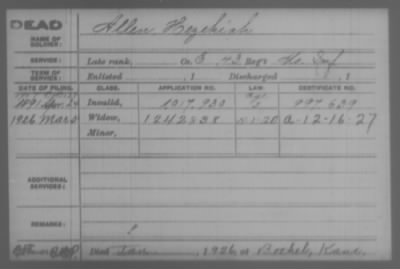 DEAD
NAME OF SOLDIER:
Allen Hezekiah
SERVICE:
Late rank, Co. E, 43 Reg't Mo. Inf
TERM OF SERVICE:
Enlisted , 1 Discharged , 1
DATE OF FILING. CLASS. APPLICATION NO. LAW. CERTIFICATE NO.
1891 Apr. 24 Invalid, 1017.930 997.639
1926 Mar 5 Widow, 1242838 5-1-20 a-12-16-27
Minor,
ADDITIONAL SERVICES:
REMARKS:
Died Jan , 1926 at Kans.